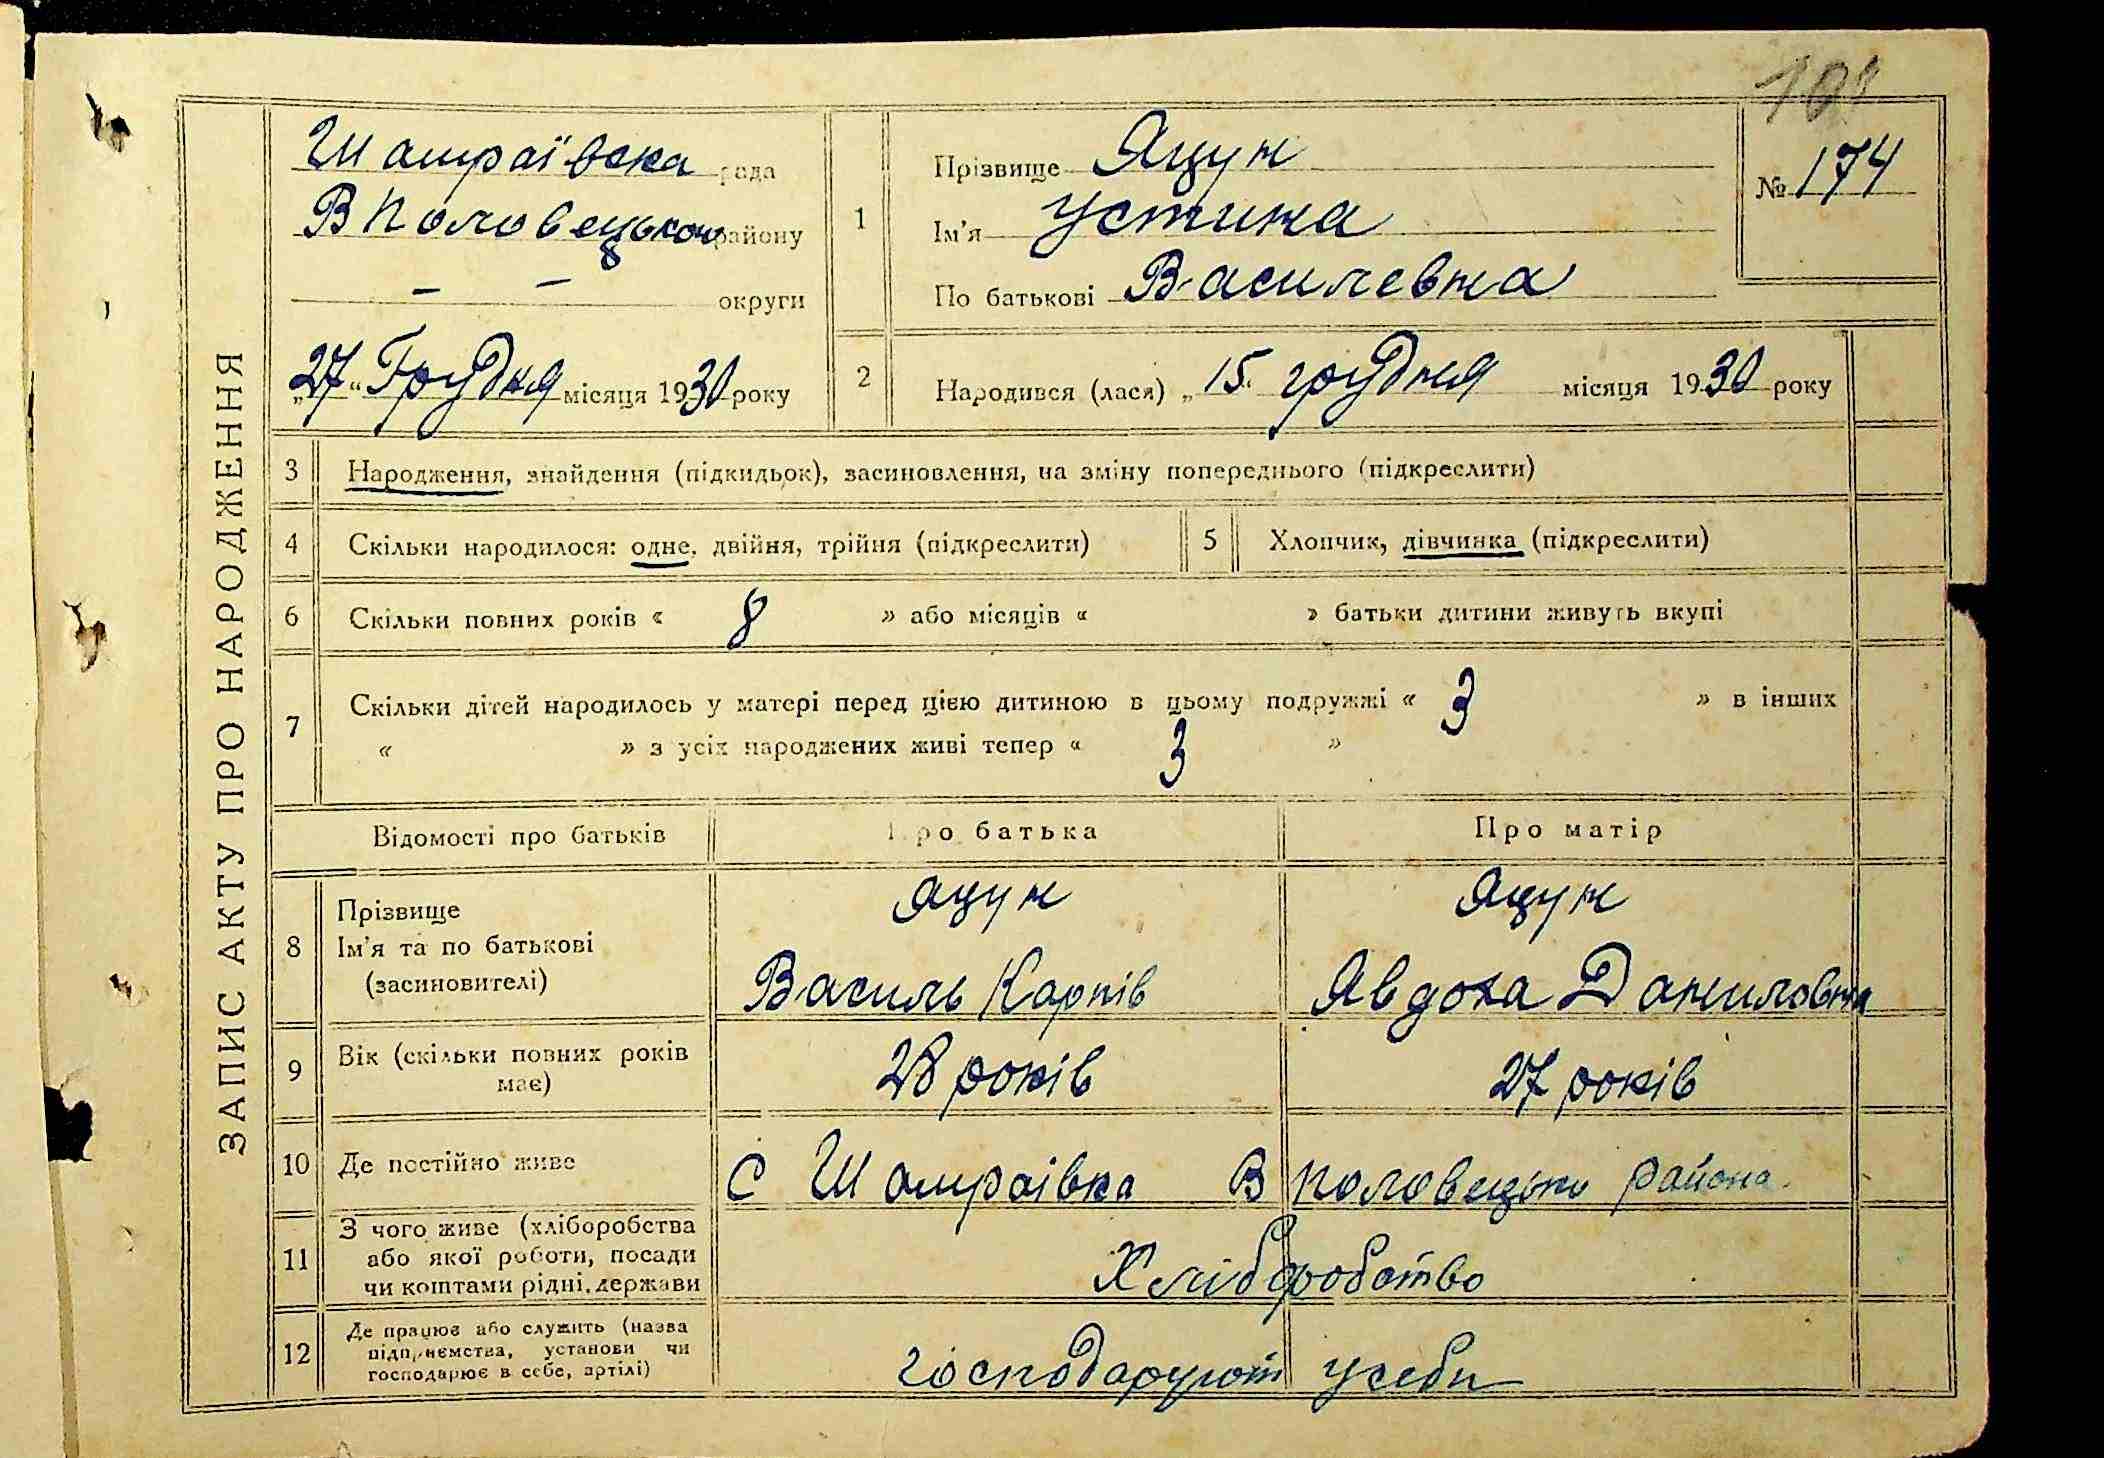 ЗАПИС АКТУ ПРО НАРОДЖЕННЯ
Шамраївска рада
В Половецького району
— — округи
„27“ Грудня місяця 1930 року
1
Прізвище Яцун
Ім'я Устина
По батькові Василевна
№ 174
2
Народився (лася) „15“ грудня місяця 1930 року
3 Народження, знайдення (підкидьок), засиновлення, на зміну попереднього (підкреслити)
4 Скільки народилося: одне, двійня, трійня (підкреслити)
5 Хлопчик, дівчинка (підкреслити)
6 Скільки повних років « 8 » або місяців « » батьки дитини живуть вкупі
7 Скільки дітей народилось у матері перед цією дитиною в цьому подружжі « 3 » в інших
« » з усіх народжених живі тепер « 3 »
Відомості про батьків Про батька Про матір
8 Прізвище
Ім'я та по батькові
(засиновителі)
Яцун
Василь Карпів
Яцун
Явдоха Даниловна
9 Вік (скільки повних років
має)
28 років
27 років
10 Де постійно живе
С Шамраівка В Половецько района
11 З чого живе (хліборобства
або якої роботи, посади
чи коштами рідні, держави
Хліборобство
12 Де працює або служить (назва
підприємства, установи чи
господарює в себе, артілі)
господарують усеби